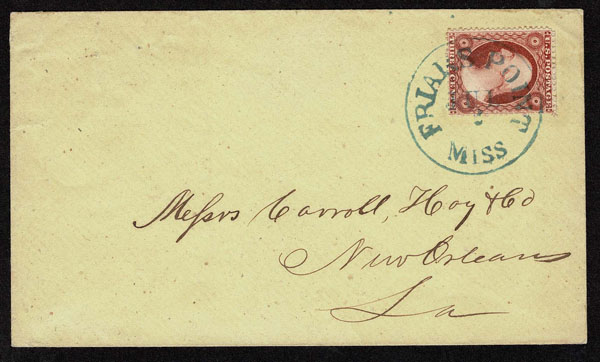 FRIARS POINT
MISS
U.S. POSTAGE
Messrs Carroll, Hoy & Co
New Orleans
La